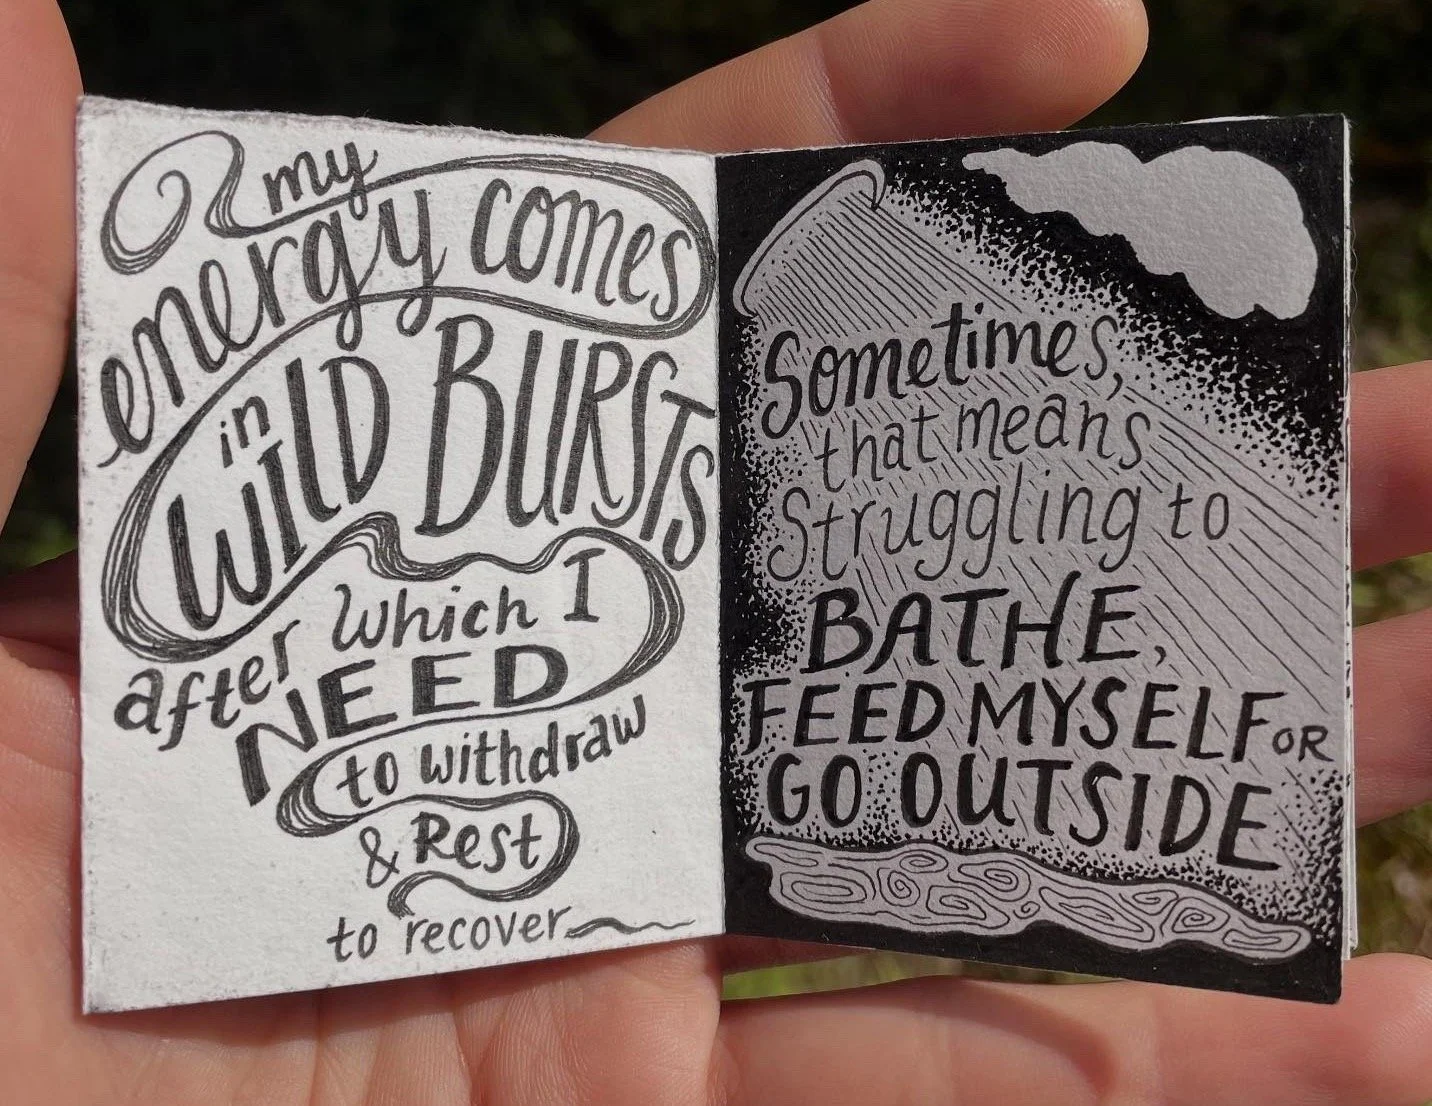 my
energy comes
in
WILD BURSTS
after which I
NEED
to withdraw
& Rest
to recover
Sometimes,
that means
Struggling to
BATHE,
FEED MYSELF OR
GO OUTSIDE